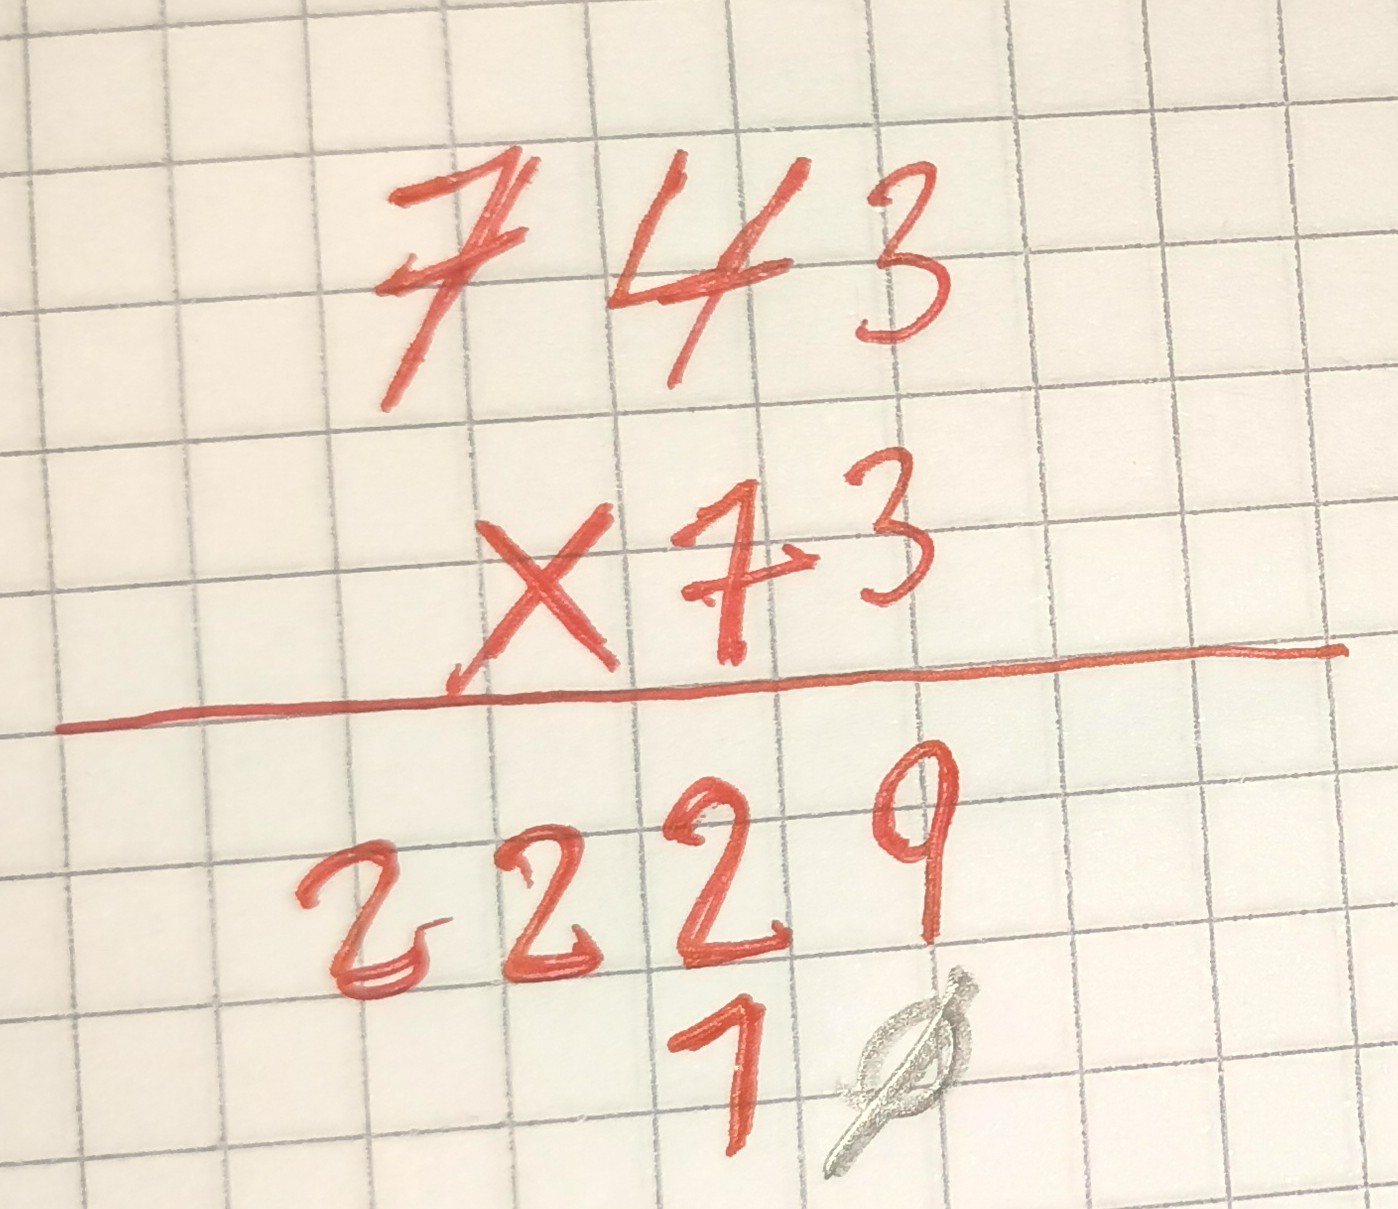 743
×73
2229
1Ø